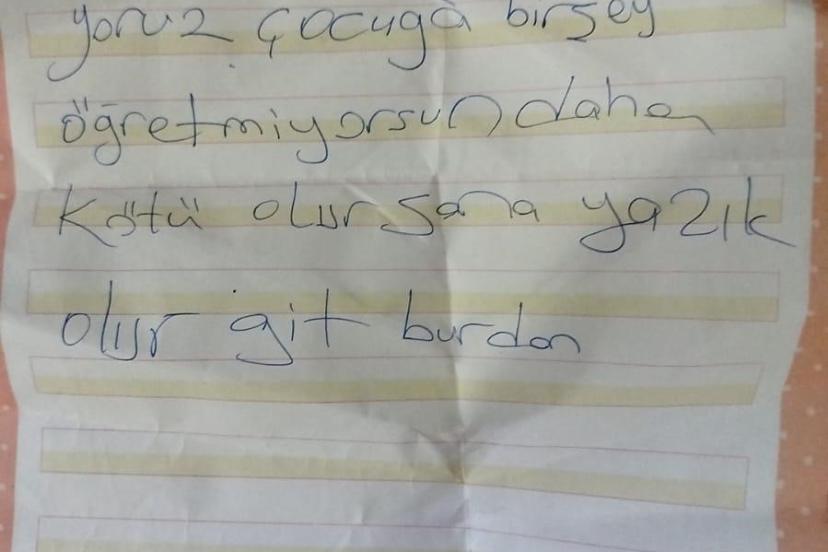 yoruz çocuğa birşey
öğretmiyorsun daha
kötü olur sana yazık
olur git burdan